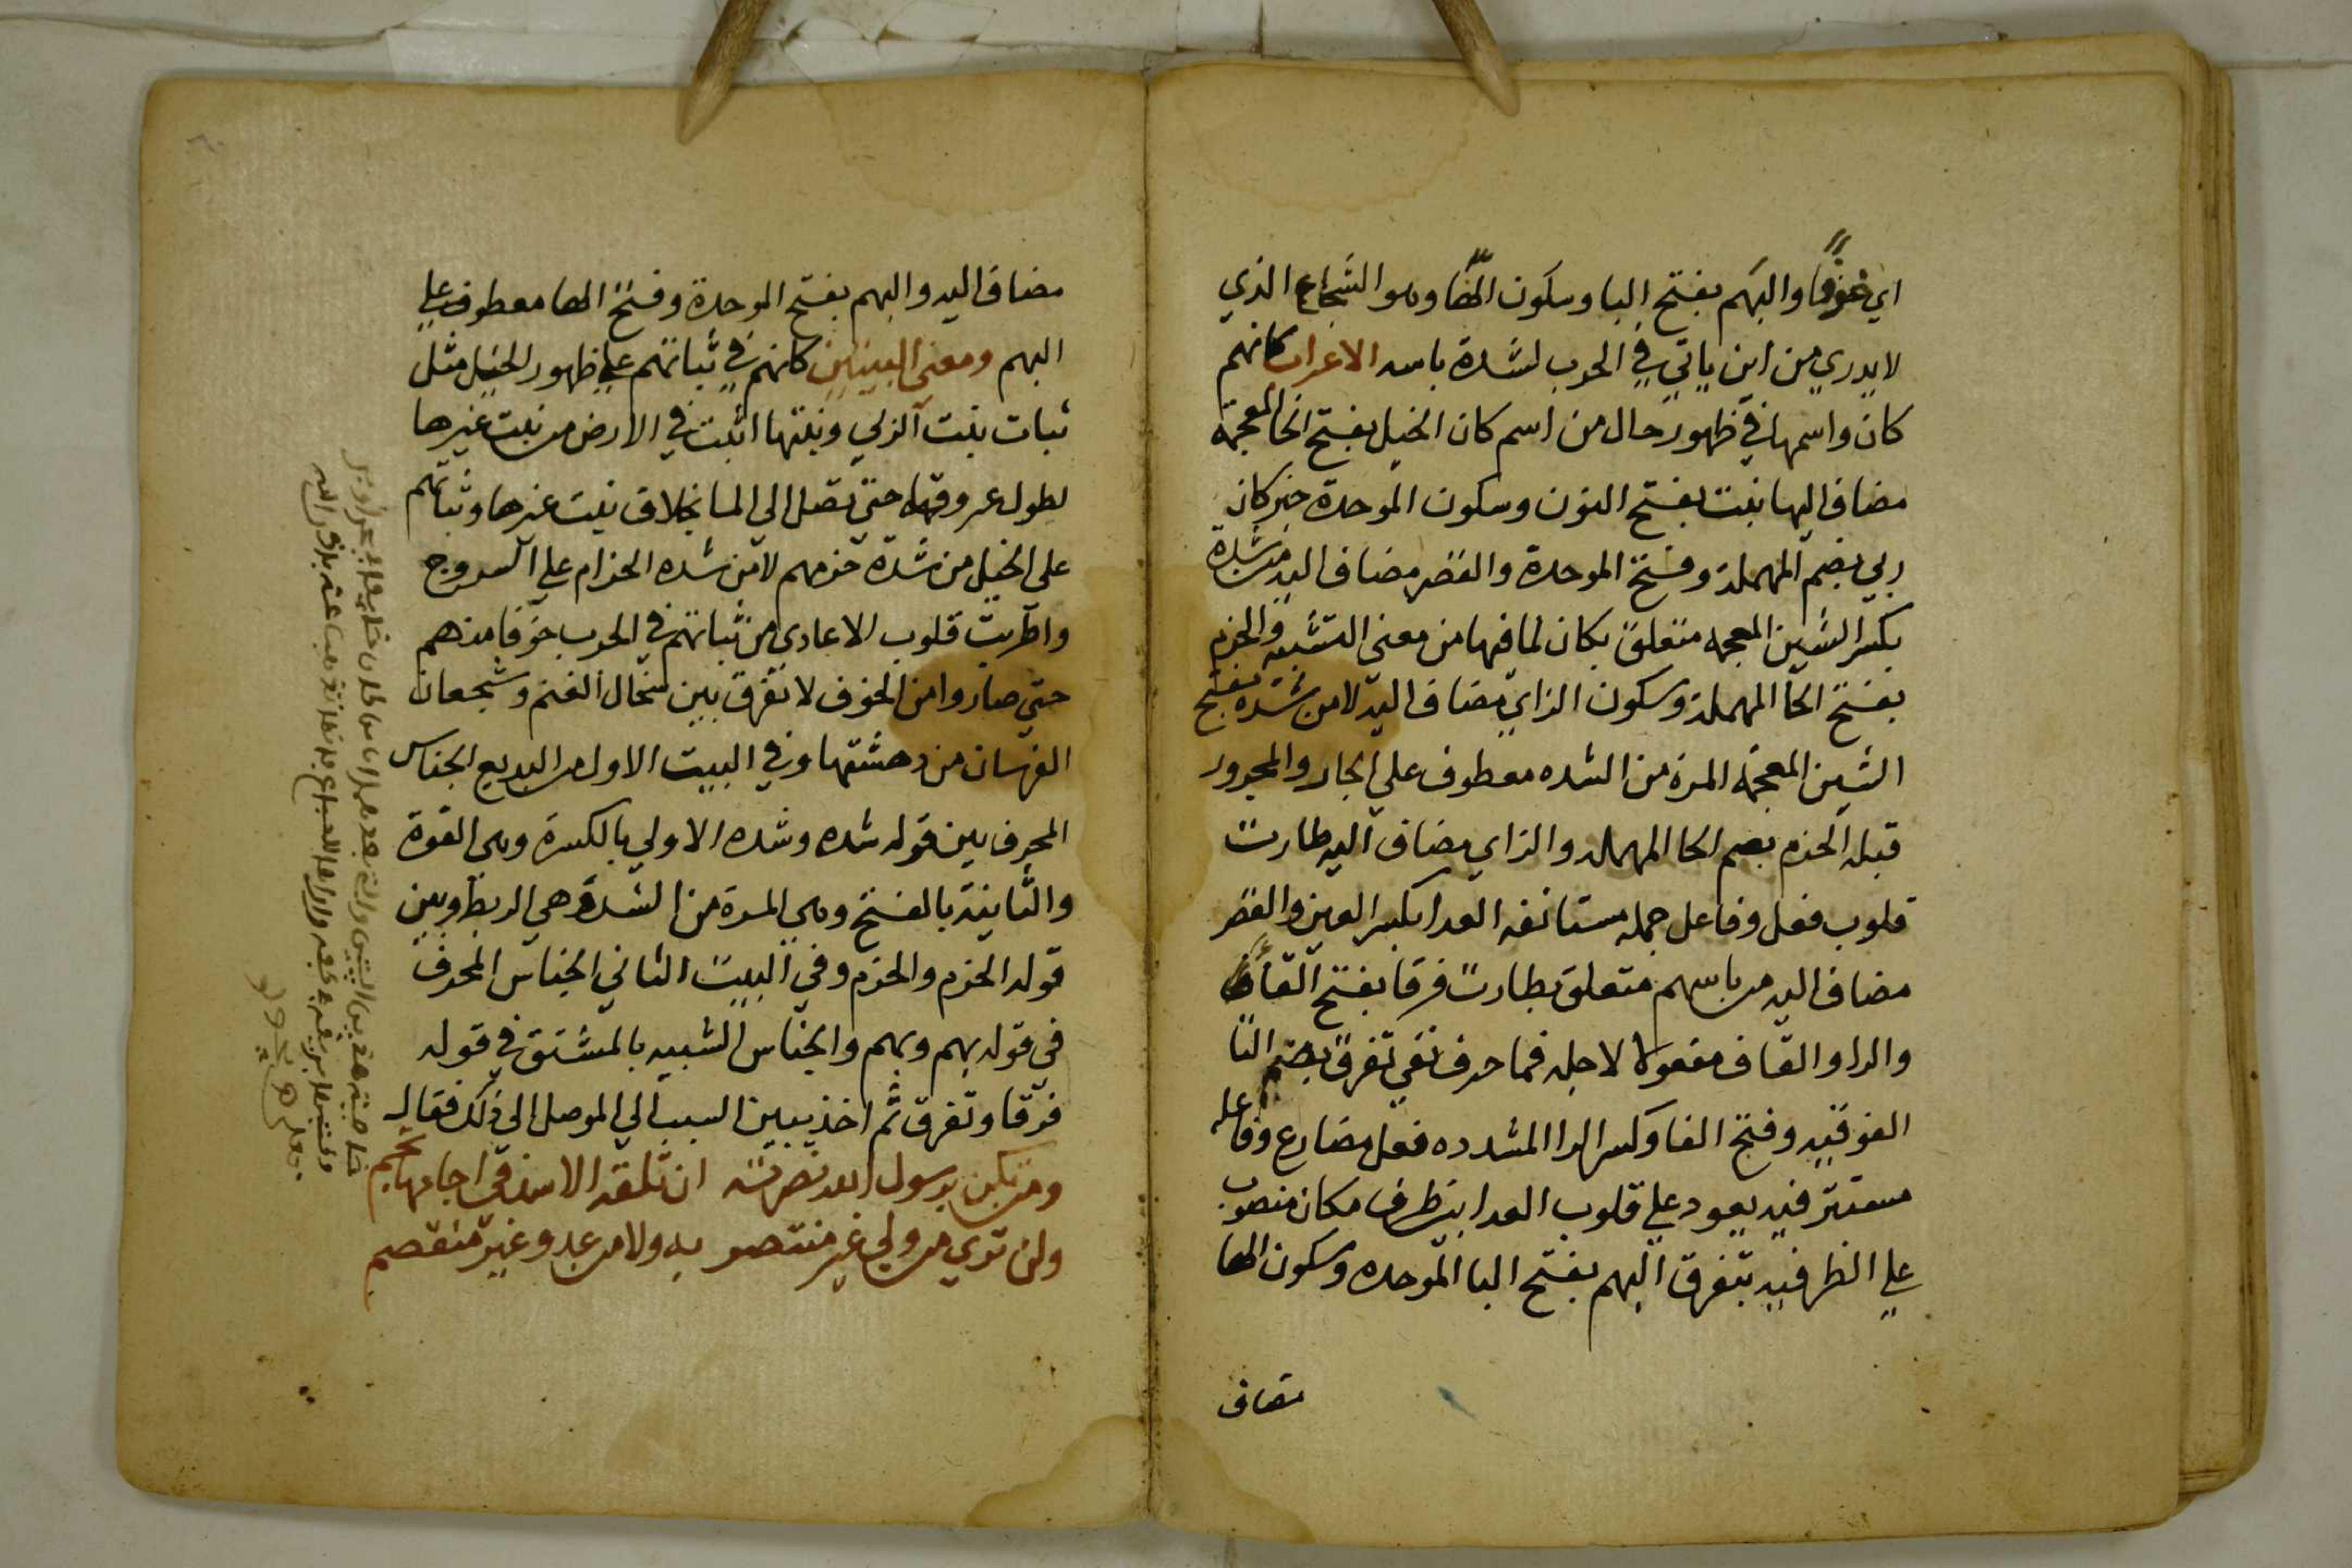 اي خوفا والبهم بفتح البا وسكون الها وهو الشجاع الذي
لا يدري من اين ياتي في الحرب لشدة باسه الاعراب كانهم
كان واسمها في ظهور حال من اسم كان الخيل بفتح الخا المعجمة
مضاف اليها نبت بفتح النون وسكون الموحدة خبر كان
ربي بضم المهملة وفتح الموحدة والقصر مضاف اليه من شدة
بكسر الشين المعجمه متعلق بكان لما فيها من معنى التشبيه والحزم
بفتح الحا المهملة وسكون الزاي مضاف اليه لا من شده بفتح
الشين المعجمه المرة من الشده معطوف علي الجار والمجرور
قبله الحزم بضم الحا المهمله والزاي مضاف اليه طارت
قلوب فعل وفاعل جمله مستانفه العدا بكسر العين والقصر
مضاف اليه من باسهم متعلق بطارت فرقا بفتح الفا
والرا والقاف مفعولا لاجله فما حرف نفي تفرق بضم التا
الفوقيه وفتح الفا وكسر الرا المشدده فعل مضارع وفاعله
مستتر فيه يعود علي قلوب العدا بين ظرف مكان منصوب
علي الظرفيه بتفرق البهم بفتح البا الموحده وسكون الها
مضاف
مضاف اليه والبهم بفتح الموحدة وفتح الها معطوف علي
البهم ومعنى البيتين كانهم في ثباتهم علي ظهور الخيل مثل
ثبات نبت الربي ونبتها اثبت في الارض من نبت غيرها
لطول عروقها حتي تصل الي الما بخلاف نبت غيرها وثباتهم
على الخيل من شدة حزمهم لا من شده الحزام علي السروج
واطربت قلوب الاعادي من ثباتهم في الحرب خوفا منهم
حتي صاروا من الخوف لا تفرق بين سخال الغنم وشجعان
الفرسان من دهشتها وفي البيت الاول من البديع الجناس
المحرف بين قوله شده وشده الاولي بالكسرة وهي القوة
والثانية بالفتح وهي المرة من الشدة وهي الربط وبين
قوله الحزم والحزم وفي البيت الثاني الجناس المحرف
في قوله بهم وبهم والجناس الشبيه بالمشتق في قوله
فرقا وتفرق ثم اخذ يبين السبب الي الموصل الي ذلك فقال
ومن تكن برسول الله نصرته ان تلقه الاسد في اجامها تجم
ولن تري من ولي غير منتصر به ولا من عدو غير منقصم